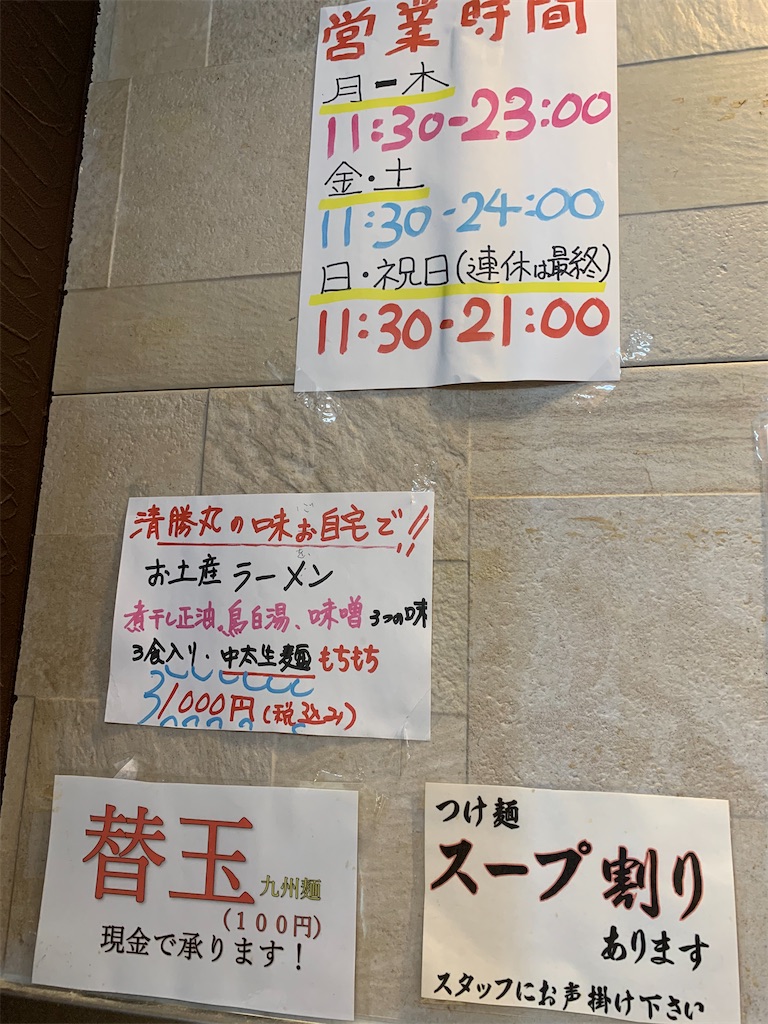 営業時間
月ー木
11:30-23:00
金・土
11:30-24:00
日・祝日(連休は最終)
11:30-21:00
清勝丸の味お自宅で!!
お土産ラーメン
煮干し正油、鳥白湯、味噌 3つの味
3食入り・中太生麺 もちもち
1000円(税込み)
替玉 九州麺
(100円)
現金で承ります！
つけ麺
スープ割り
あります
スタッフにお声掛け下さい